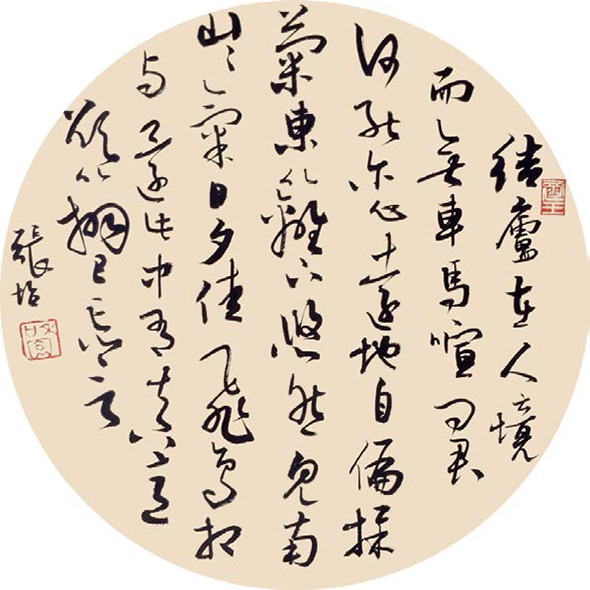 結廬在人境
而無車馬喧問君
何能尔心遠地自偏採
菊東籬下悠然見南
山〻氣日夕佳飛鳥相
与還此中有真意
欲辨已忘言
張